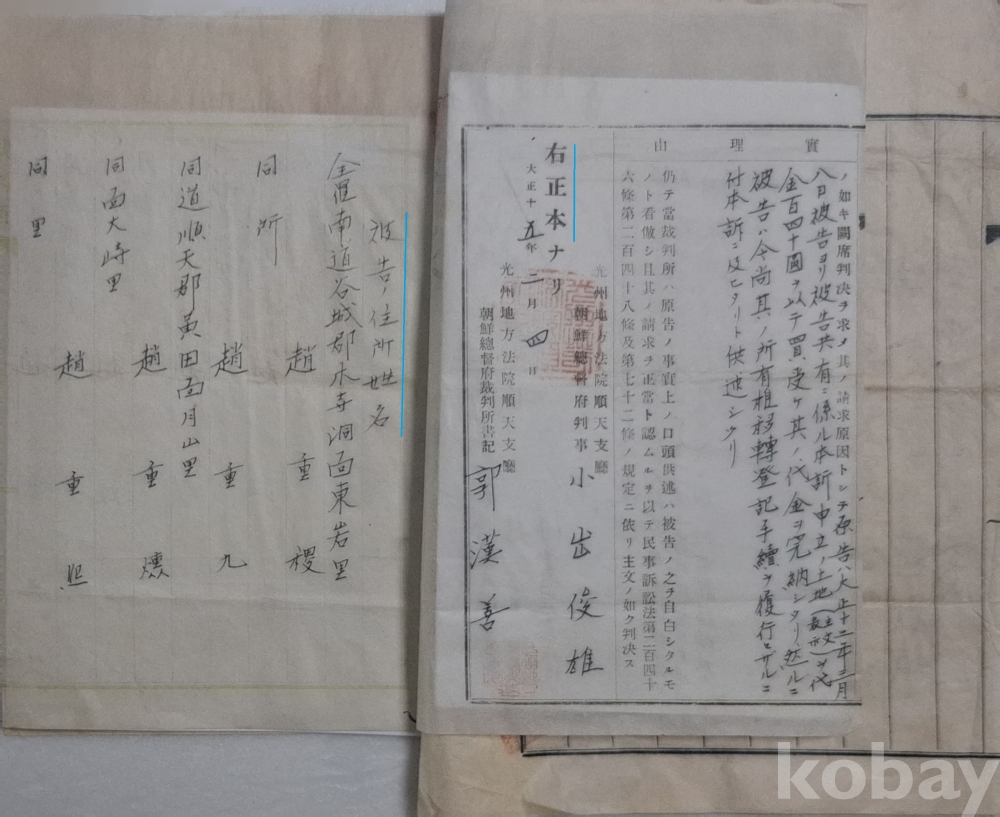 實
理
由
ノ如キ闕席判決ヲ求メ其ノ請求原因トシテ原告ハ大正十二年三月
八日被告ヨリ被告共有ニ係ル本訴申立ノ土地(主文表示)ヲ代
金百四十圓ヲ以テ買受ケ其ノ代金ヲ完納シタリ然ルニ
被告ハ今尚其ノ所有權移轉登記手續ヲ履行セザルニ
付本訴ニ及ヒタリト供述シタリ
仍テ當裁判所ハ原告ノ事實上ノ口頭供述ハ被告ノ之ヲ自白シタルモ
ノト看倣シ且其ノ請求ヲ正當ト認ムルヲ以テ民事訴訟法第二百四十
六條第二百四十八條及第七十二條ノ規定ニ依リ主文ノ如ク判決ス
光州地方法院順天支廳
朝鮮總督府判事 小出俊雄
右正本ナリ
大正十五年二月四日
光州地方法院順天支廳
朝鮮總督府裁判所書記 郭漢善
被告ノ住所姓名
全羅南道谷城郡木寺洞面東岩里
趙重稷
同所
趙重九
同道順天郡黃田面月山里
趙重燻
同面大峙里
趙重熙
同里
kobay